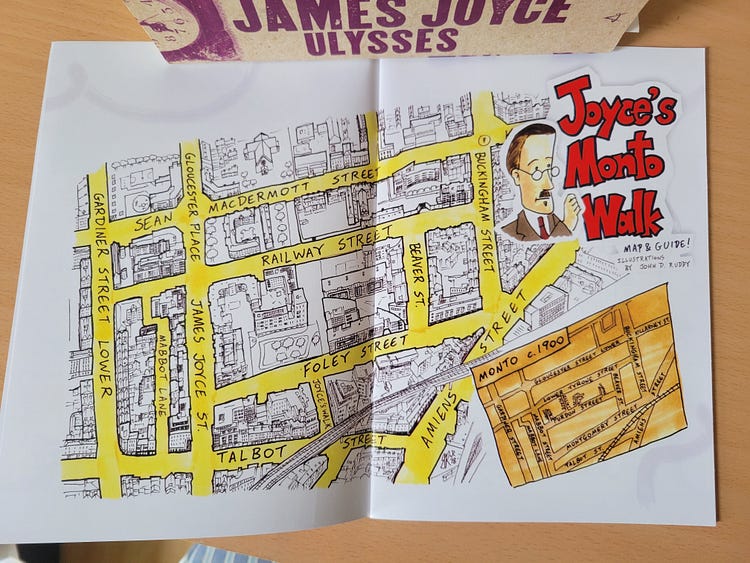 JAMES JOYCE
ULYSSES
Joyce's
Monto
Walk
MAP & GUIDE!
ILLUSTRATIONS
BY JOHN D. RUDDY
GARDINER STREET LOWER
GLOUCESTER PLACE
SEAN MACDERMOTT STREET
BUCKINGHAM STREET
RAILWAY STREET
BEAVER ST.
MABBOT LANE
JAMES JOYCE ST.
FOLEY STREET
JOYCE'S WALK
TALBOT STREET
AMIENS STREET
MONTO c.1900
GLOUCESTER STREET LOWER
BUCKINGHAM STREET
KILLARNEY ST.
LOWER TYRONE STREET
BEAVER ST.
PURDON STREET
GARDINER STREET
MABBOT STREET
MABBOT LANE
MONTGOMERY STREET
TALBOT ST.
AMIENS STREET